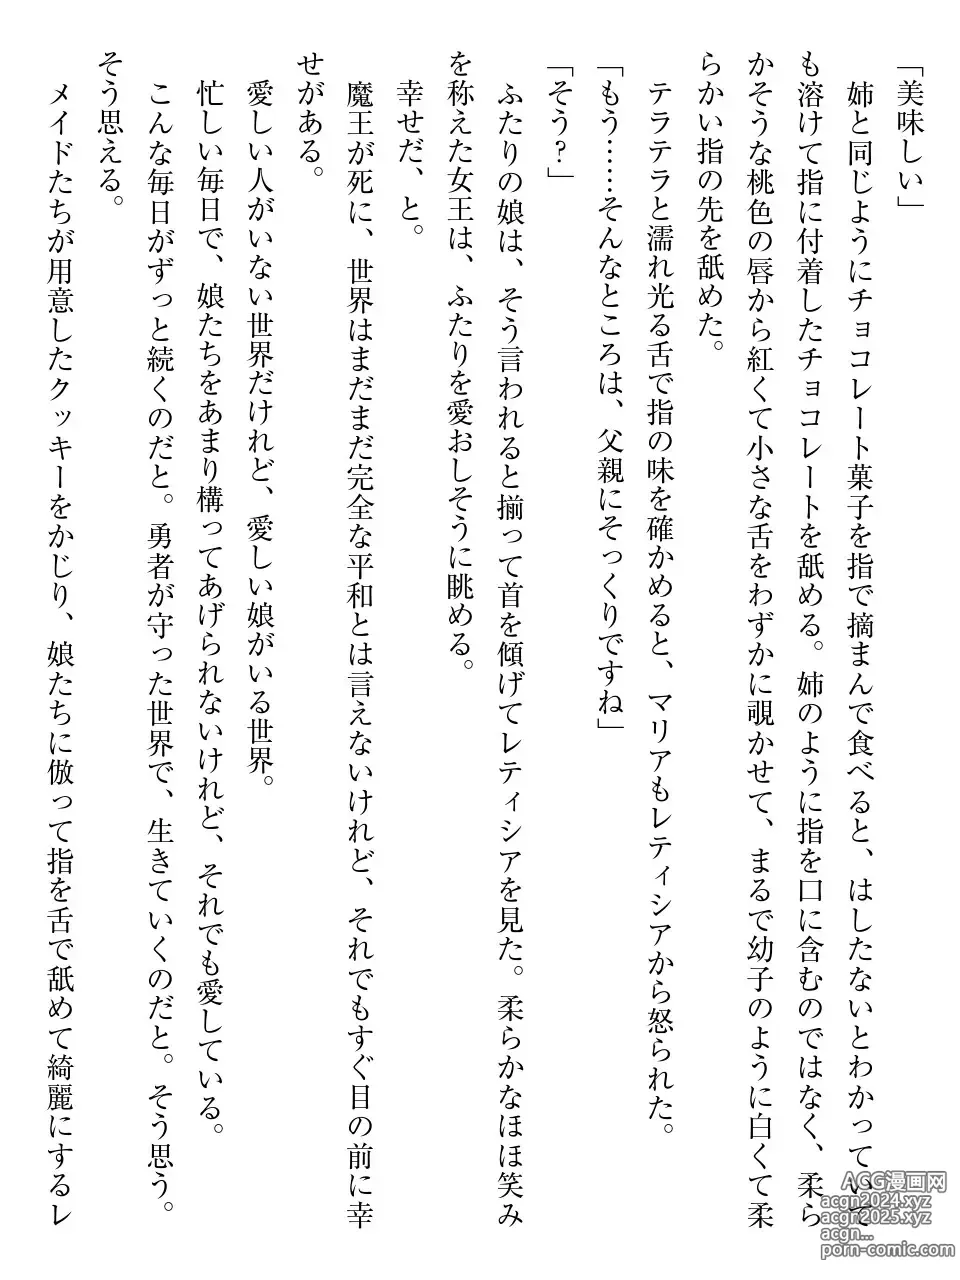 「美味しい」
　姉と同じようにチョコレート菓子を指で摘まんで食べると、はしたないとわかっていて
も溶けて指に付着したチョコレートを舐める。姉のように指を口に含むのではなく、柔ら
かそうな桃色の唇から紅くて小さな舌をわずかに覗かせて、まるで幼子のように白くて柔
らかい指の先を舐めた。
　テラテラと濡れ光る舌で指の味を確かめると、マリアもレティシアから怒られた。
「もう……そんなところは、父親にそっくりですね」
「そう？」
　ふたりの娘は、そう言われると揃って首を傾げてレティシアを見た。柔らかなほほ笑み
を称えた女王は、ふたりを愛おしそうに眺める。
　幸せだ、と。
　魔王が死に、世界はまだまだ完全な平和とは言えないけれど、それでもすぐ目の前に幸
せがある。
　愛しい人がいない世界だけれど、愛しい娘がいる世界。
　忙しい毎日で、娘たちをあまり構ってあげられないけれど、それでも愛している。
　こんな毎日がずっと続くのだと。勇者が守った世界で、生きていくのだと。そう思う。
そう思える。
　メイドたちが用意したクッキーをかじり、娘たちに倣って指を舌で舐めて綺麗にするレ
ACG漫画网
acgn2024.xyz
acgn2025.xyz
acgn...
porn-comic.com